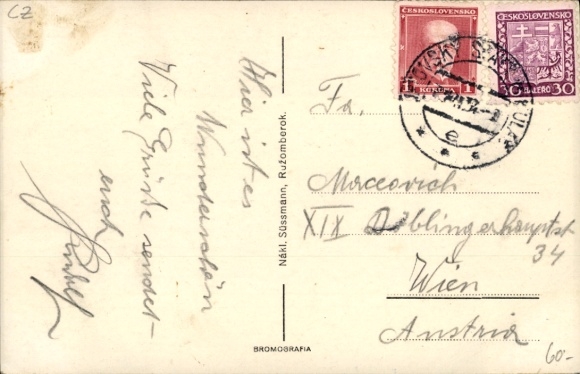 CZ
Hier ist es
Wunderschön
Viele Grüsse sendet
euch
Rudolf
Nákl. Süssmann, Ružomberok.
BROMOGRAFIA
ČESKOSLOVENSKO
1 KORUNA 1
ČESKOSLOVENSKO
30 HALÉŘŮ 30
Fa,
Морcovich
XIX Döblingerhauptst
34
Wien
Austria
60-